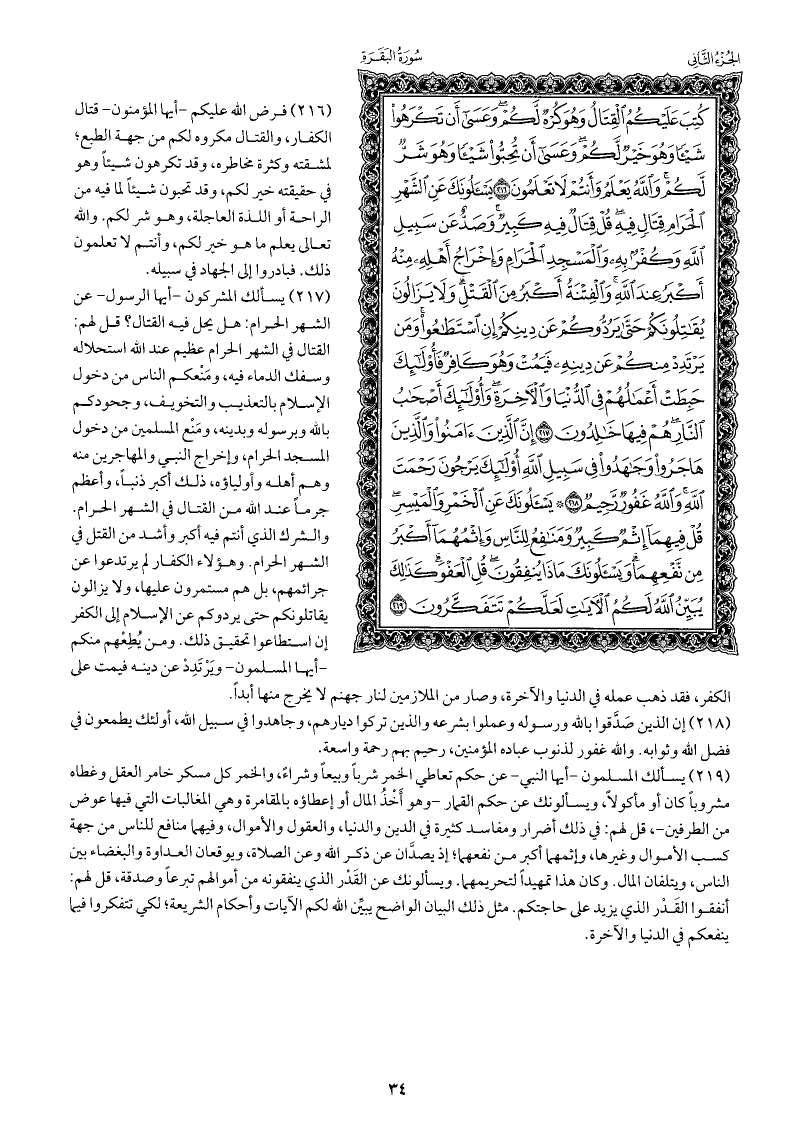 الجزء الثاني
سورة البقرة
كُتِبَ عَلَيْكُمُ ٱلْقِتَالُ وَهُوَ كُرْهٌ لَّكُمْ ۖ وَعَسَىٰٓ أَن تَكْرَهُوا۟
شَيْـًٔا وَهُوَ خَيْرٌ لَّكُمْ ۖ وَعَسَىٰٓ أَن تُحِبُّوا۟ شَيْـًٔا وَهُوَ شَرٌّ
لَّكُمْ ۗ وَٱللَّهُ يَعْلَمُ وَأَنتُمْ لَا تَعْلَمُونَ ٢١٦ يَسْـَٔلُونَكَ عَنِ ٱلشَّهْرِ
ٱلْحَرَامِ قِتَالٍ فِيهِ ۖ قُلْ قِتَالٌ فِيهِ كَبِيرٌ ۖ وَصَدٌّ عَن سَبِيلِ
ٱللَّهِ وَكُفْرٌۢ بِهِۦ وَٱلْمَسْجِدِ ٱلْحَرَامِ وَإِخْرَاجُ أَهْلِهِۦ مِنْهُ
أَكْبَرُ عِندَ ٱللَّهِ ۚ وَٱلْفِتْنَةُ أَكْبَرُ مِنَ ٱلْقَتْلِ ۗ وَلَا يَزَالُونَ
يُقَـٰتِلُونَكُمْ حَتَّىٰ يَرُدُّوكُمْ عَن دِينِكُمْ إِنِ ٱسْتَطَـٰعُوا۟ ۚ وَمَن
يَرْتَدِدْ مِنكُمْ عَن دِينِهِۦ فَيَمُتْ وَهُوَ كَافِرٌ فَأُو۟لَـٰٓئِكَ
حَبِطَتْ أَعْمَـٰلُهُمْ فِى ٱلدُّنْيَا وَٱلْـَٔاخِرَةِ ۖ وَأُو۟لَـٰٓئِكَ أَصْحَـٰبُ
ٱلنَّارِ ۖ هُمْ فِيهَا خَـٰلِدُونَ ٢١٧ إِنَّ ٱلَّذِينَ ءَامَنُوا۟ وَٱلَّذِينَ
هَاجَرُوا۟ وَجَـٰهَدُوا۟ فِى سَبِيلِ ٱللَّهِ أُو۟لَـٰٓئِكَ يَرْجُونَ رَحْمَتَ
ٱللَّهِ ۚ وَٱللَّهُ غَفُورٌ رَّحِيمٌ ٢١٨ ۞ يَسْـَٔلُونَكَ عَنِ ٱلْخَمْرِ وَٱلْمَيْسِرِ ۖ
قُلْ فِيهِمَآ إِثْمٌ كَبِيرٌ وَمَنَـٰفِعُ لِلنَّاسِ وَإِثْمُهُمَآ أَكْبَرُ
مِن نَّفْعِهِمَا ۗ وَيَسْـَٔلُونَكَ مَاذَا يُنفِقُونَ قُلِ ٱلْعَفْوَ ۗ كَذَٰلِكَ
يُبَيِّنُ ٱللَّهُ لَكُمُ ٱلْـَٔايَـٰتِ لَعَلَّكُمْ تَتَفَكَّرُونَ ٢١٩
(٢١٦) فرض الله عليكم -أيها المؤمنون- قتال
الكفار، والقتال مكروه لكم من جهة الطبع؛
لمشقته وكثرة مخاطره، وقد تكرهون شيئاً وهو
في حقيقته خير لكم، وقد تحبون شيئاً لما فيه من
الراحة أو اللذة العاجلة، وهو شر لكم. والله
تعالى يعلم ما هو خير لكم، وأنتم لا تعلمون
ذلك. فبادروا إلى الجهاد في سبيله.
(٢١٧) يسألك المشركون -أيها الرسول- عن
الشهر الحرام: هل يحل فيه القتال؟ قل لهم:
القتال في الشهر الحرام عظيم عند الله استحلاله
وسفك الدماء فيه، ومَنْعكم الناس من دخول
الإسلام بالتعذيب والتخويف، وجحودكم
بالله وبرسوله وبدينه، ومَنْع المسلمين من دخول
المسجد الحرام، وإخراج النبي والمهاجرين منه
وهم أهله وأولياؤه، ذلك أكبر ذنباً، وأعظم
جرماً عند الله من القتال في الشهر الحرام.
والشرك الذي أنتم فيه أكبر وأشد من القتل في
الشهر الحرام. وهؤلاء الكفار لم يرتدعوا عن
جرائمهم، بل هم مستمرون عليها، ولا يزالون
يقاتلونكم حتى يردوكم عن الإسلام إلى الكفر
إن استطاعوا تحقيق ذلك. ومن يُطِعْهم منكم
-أيها المسلمون- ويَرْتَدِدْ عن دينه فيمت على
الكفر، فقد ذهب عمله في الدنيا والآخرة، وصار من الملازمين لنار جهنم لا يخرج منها أبداً.
(٢١٨) إن الذين صَدَّقوا بالله ورسوله وعملوا بشرعه والذين تركوا ديارهم، وجاهدوا في سبيل الله، أولئك يطمعون في
فضل الله وثوابه. والله غفور لذنوب عباده المؤمنين، رحيم بهم رحمة واسعة.
(٢١٩) يسألك المسلمون -أيها النبي- عن حكم تعاطي الخمر شرباً وبيعاً وشراءً، والخمر كل مسكر خامر العقل وغطاه
مشروباً كان أو مأكولاً، ويسألونك عن حكم القمار -وهو أَخْذُ المال أو إعطاؤه بالمقامرة وهي المغالبات التي فيها عوض
من الطرفين-، قل لهم: في ذلك أضرار ومفاسد كثيرة في الدين والدنيا، والعقول والأموال، وفيهما منافع للناس من جهة
كسب الأموال وغيرها، وإثمهما أكبر من نفعهما؛ إذ يصدَّان عن ذكر الله وعن الصلاة، ويوقعان العداوة والبغضاء بين
الناس، ويتلفان المال. وكان هذا تمهيداً لتحريمهما. ويسألونك عن القَدْر الذي ينفقونه من أموالهم تبرعاً وصدقة، قل لهم:
أنفقوا القَدْر الذي يزيد على حاجتكم. مثل ذلك البيان الواضح يبيِّن الله لكم الآيات وأحكام الشريعة؛ لكي تتفكروا فيما
ينفعكم في الدنيا والآخرة.
٣٤